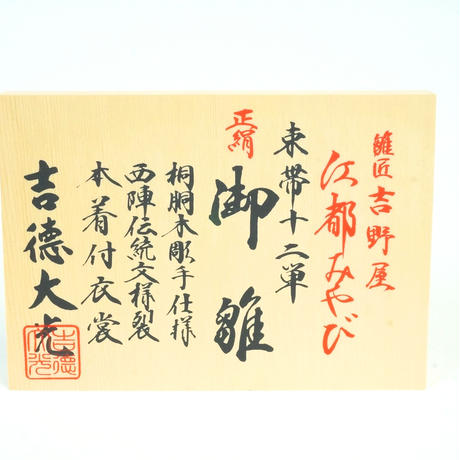 雛匠 吉野屋
江都みやび
束帯十二単
正絹
御雛
桐胴木彫手仕様
西陣伝統文様裂
本着付衣裳
吉德大光
吉德大光